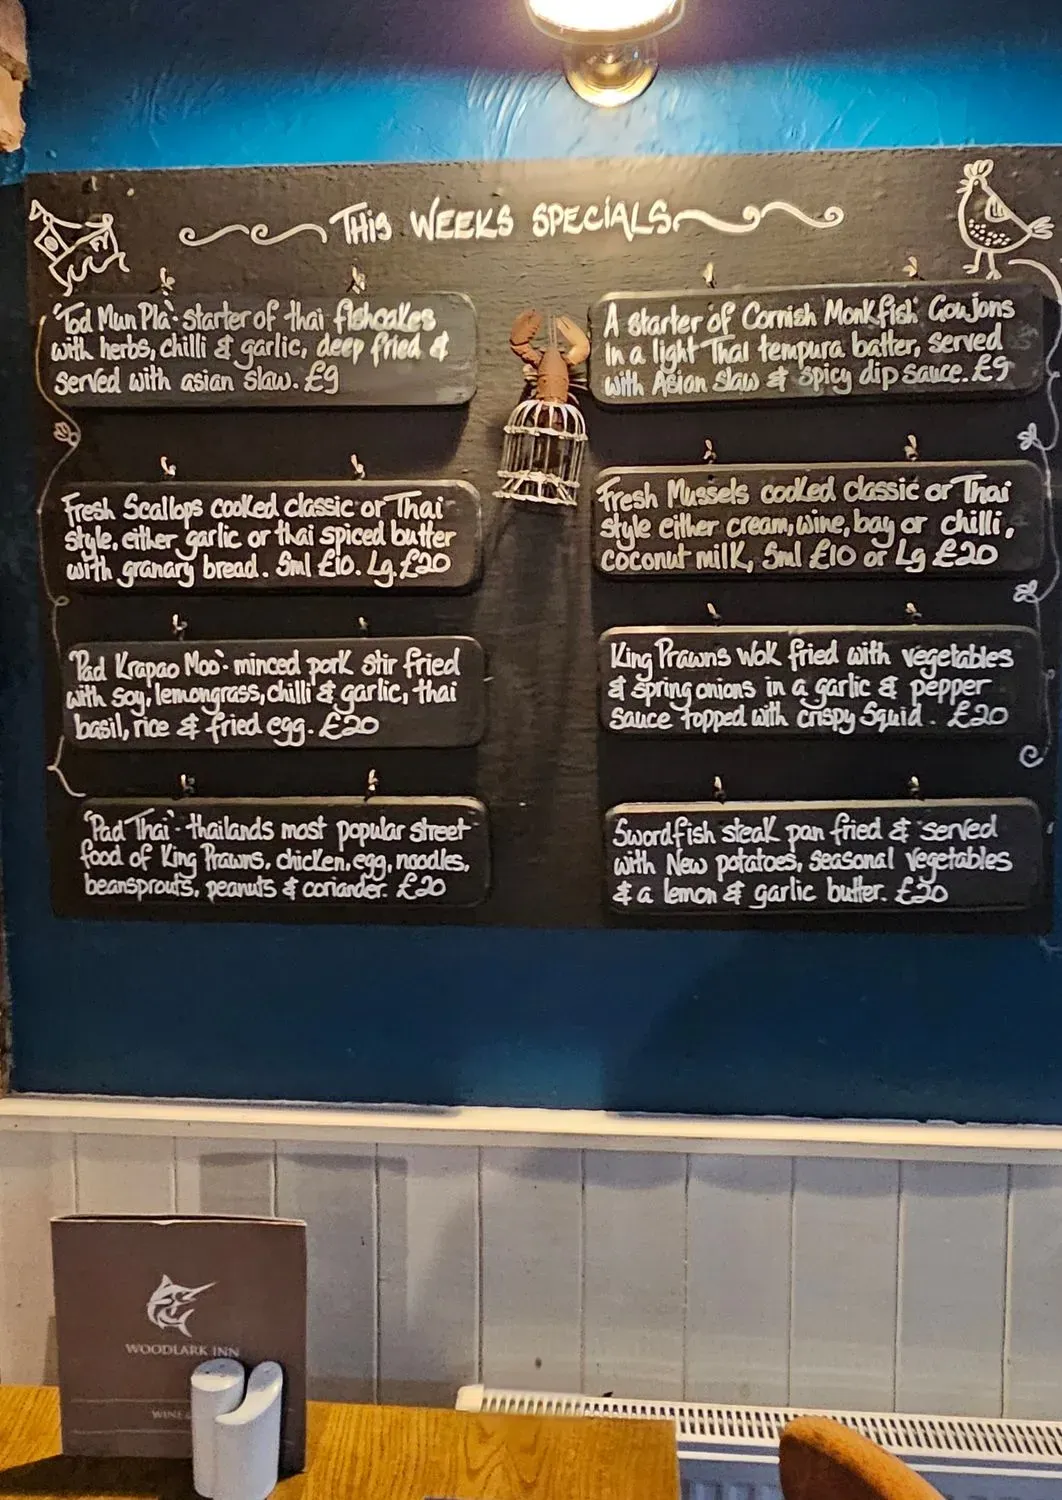 THIS WEEKS SPECIALS
'Tod Mun Pla'- starter of thai fishcakes
with herbs, chilli & garlic, deep fried &
served with asian slaw. £9
Fresh Scallops cooked classic or Thai
style, either garlic or thai spiced butter
with granary bread. Sml £10. Lg. £20
'Pad Krapao Moo'- minced pork stir fried
with soy, lemongrass, chilli & garlic, thai
basil, rice & fried egg. £20
'Pad Thai'- thailands most popular street
food of King Prawns, chicken, egg, noodles,
beansprouts, peanuts & coriander. £20
A starter of Cornish Monkfish Goujons
In a light Thai tempura batter, served
with Asian slaw & spicy dip sauce. £9
Fresh Mussels cooked classic or Thai
style either cream, wine, bay or chilli,
coconut milk, Sml £10 or Lg £20
King Prawns Wok fried with vegetables
& spring onions in a garlic & pepper
sauce topped with crispy Squid. £20
Swordfish steak pan fried & served
with New potatoes, seasonal vegetables
& a lemon & garlic butter. £20
WOODLARK INN
WINE